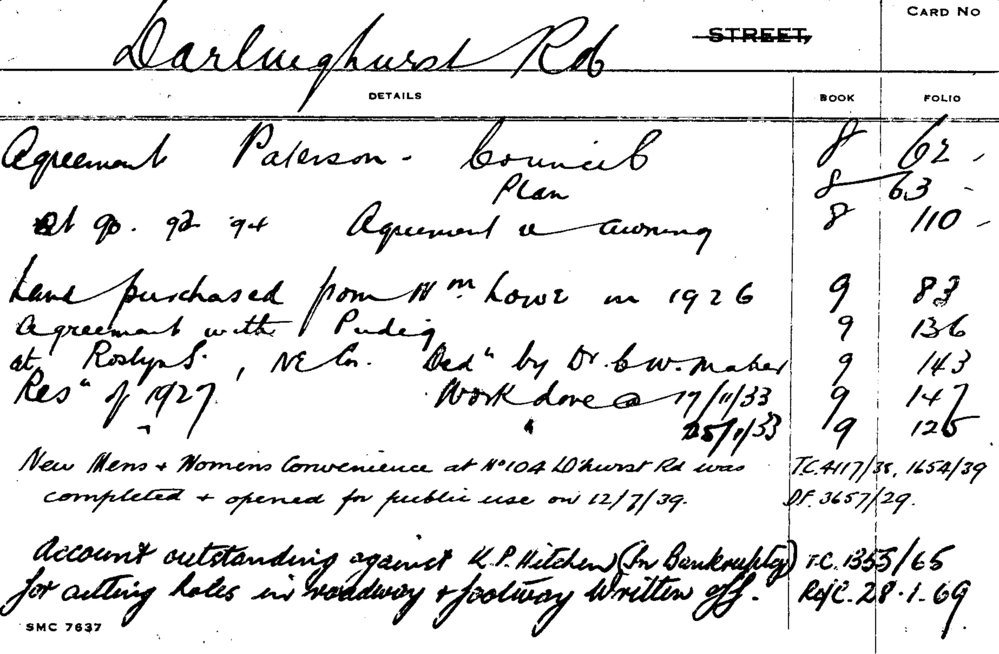 CARD NO
Darlinghurst Rd STREET,
DETAILS BOOK FOLIO
Agreement Paterson - Council 8 62 -
Plan 8 63 -
at 90. 92 94 Agreement re awning 8 110 -
Land purchased from Wm Lowe in 1926 9 83
Agreement with Pudig 9 136
at Roslyn S., NE Cor. Ded" by Dr. C. W. Maher 9 143
Res" of 1927 Work done @ 17/11/33 9 147
" " 25/1/33 9 125
New Mens + Womens Convenience at No 104 D'hurst Rd was T.C. 4117/38, 1654/39
completed + opened for public use on 12/7/39. D.F. 3657/29.
Account outstanding against K.P. Hitchen (In Bankruptcy) T.C. 1353/65
for cutting holes in roadway + footway written off. R of C. 28.1.69
SMC 7637